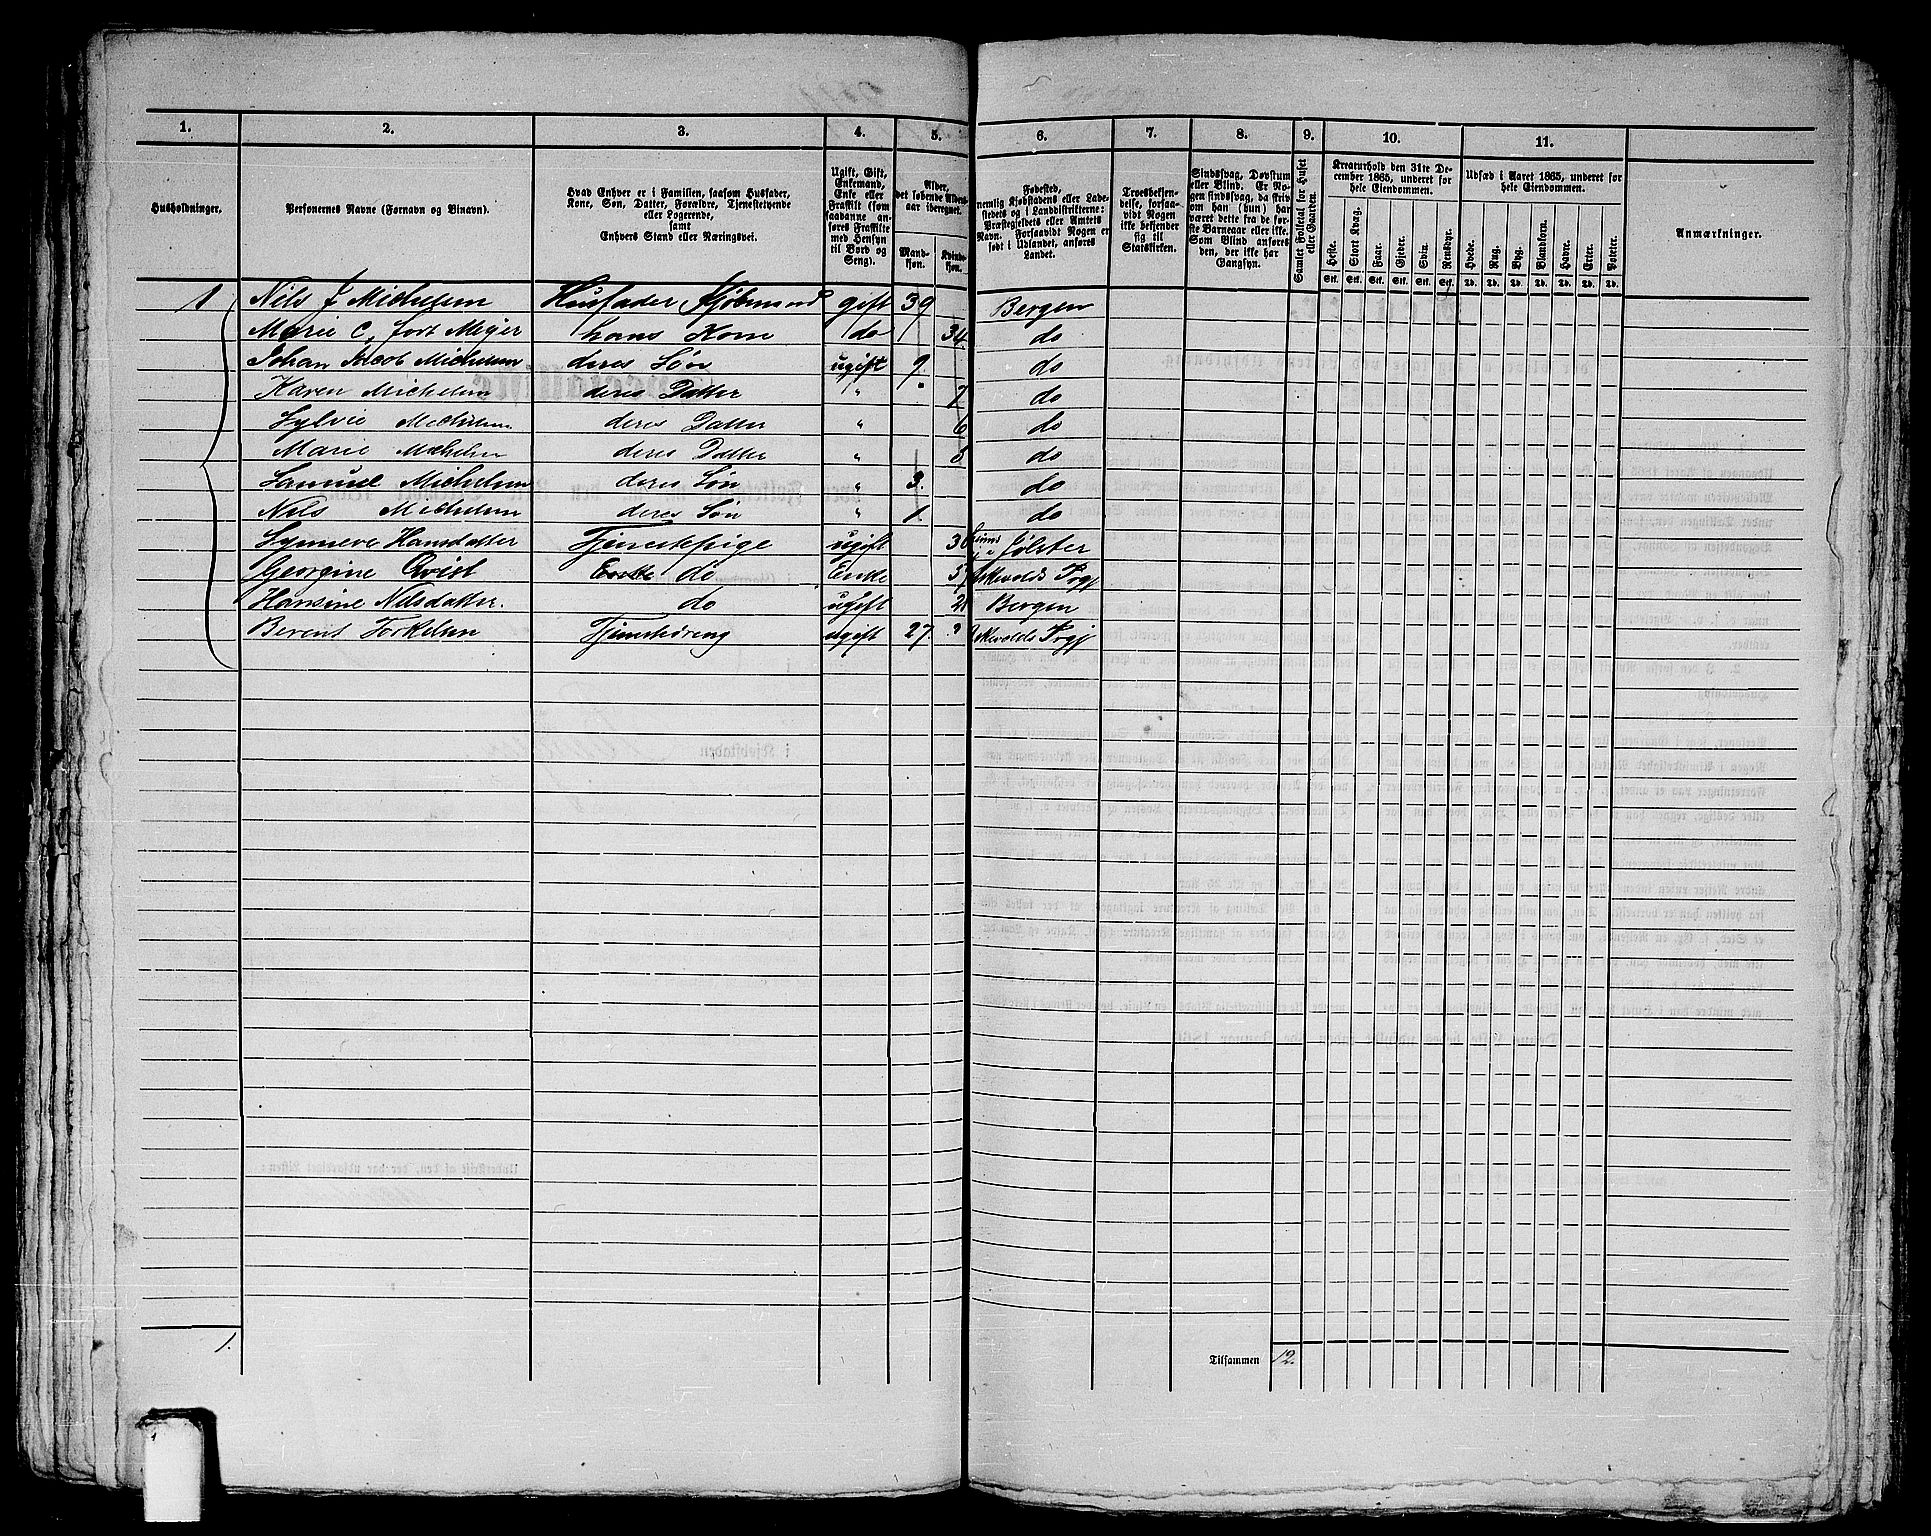 1. 2. 3. 4. 5. 6. 7. 8. 9. 10. 11.
Husholdninger.
Personernes Navne (Fornavn og Binavn).
Hvad Enhver er i Familien, saasom Husfader,
Kone, Søn, Datter, Forældre, Tjenestetyende
eller Logerende,
samt
Enhvers Stand eller Næringsvei.
Ugift, Gift,
Enkemand,
Enke eller
Fraskilt (som
saadanne an-
føres Fraskilte
med Hensyn
til Bord og
Seng).
Alder,
det løbende Alders-
aar iberegnet.
Mand-
kjøn.
Kvinde-
kjøn.
Fødested,
nemlig Kjøbstadens eller Lade-
stedets og i Landdistrikterne:
Præstegjeldets eller Amtets
Navn. Forsaavidt Nogen er
født i Udlandet, anføres
Landet.
Troesbekjen-
delse, forsaa-
vidt Nogen
ikke bekjender
sig til
Statskirken.
Sindssvag, Døvstum
eller Blind. Er No-
gen sindssvag, da skriv
om han (hun) har
været dette fra de før-
ste Barneaar eller ikke.
Som Blind anføres
den, der ikke har
Gangsyn.
Samlet Folketal for Huset
eller Gaarden.
Kreaturhold den 31te De-
cember 1865, underet for
hele Eiendommen.
Heste. Stort Kvæg. Faar. Gjeder. Svin. Rensdyr.
Stk. Stk. Stk. Stk. Stk. Stk.
Udsæd i Aaret 1865, underet for
hele Eiendommen.
Hvede. Rug. Byg. Blandkorn. Havre. Erter. Poteter.
Td. Td. Td. Td. Td. Td. Td.
Anmærkninger.
1 Nils J Michelsen Husfader Kjøbmand gift 39 Bergen
Marie C, født Meyer hans Kone do 34 do
Johan Jacob Michelsen deres Søn ugift 9. do
Karen Michelsen deres Datter " " 7 do
Sylvie Michelsen deres Datter " 6 do
Marie Michelsen deres Datter " 5 do
Samuel Michelsen deres Søn " 3. do
Nils Michelsen deres Søn " 1 do
Synneve Hansdatter Tjenestepige ugift 36 Jølster
Georgine Qvist do Enke 57 Askevolds Prgj
Hansine Nilsdatter. do ugift 21 Bergen
Berent Torkelsen Tjenstedreng ugift 27. " Askevolds Prgj
1.
Tilsammen 12.